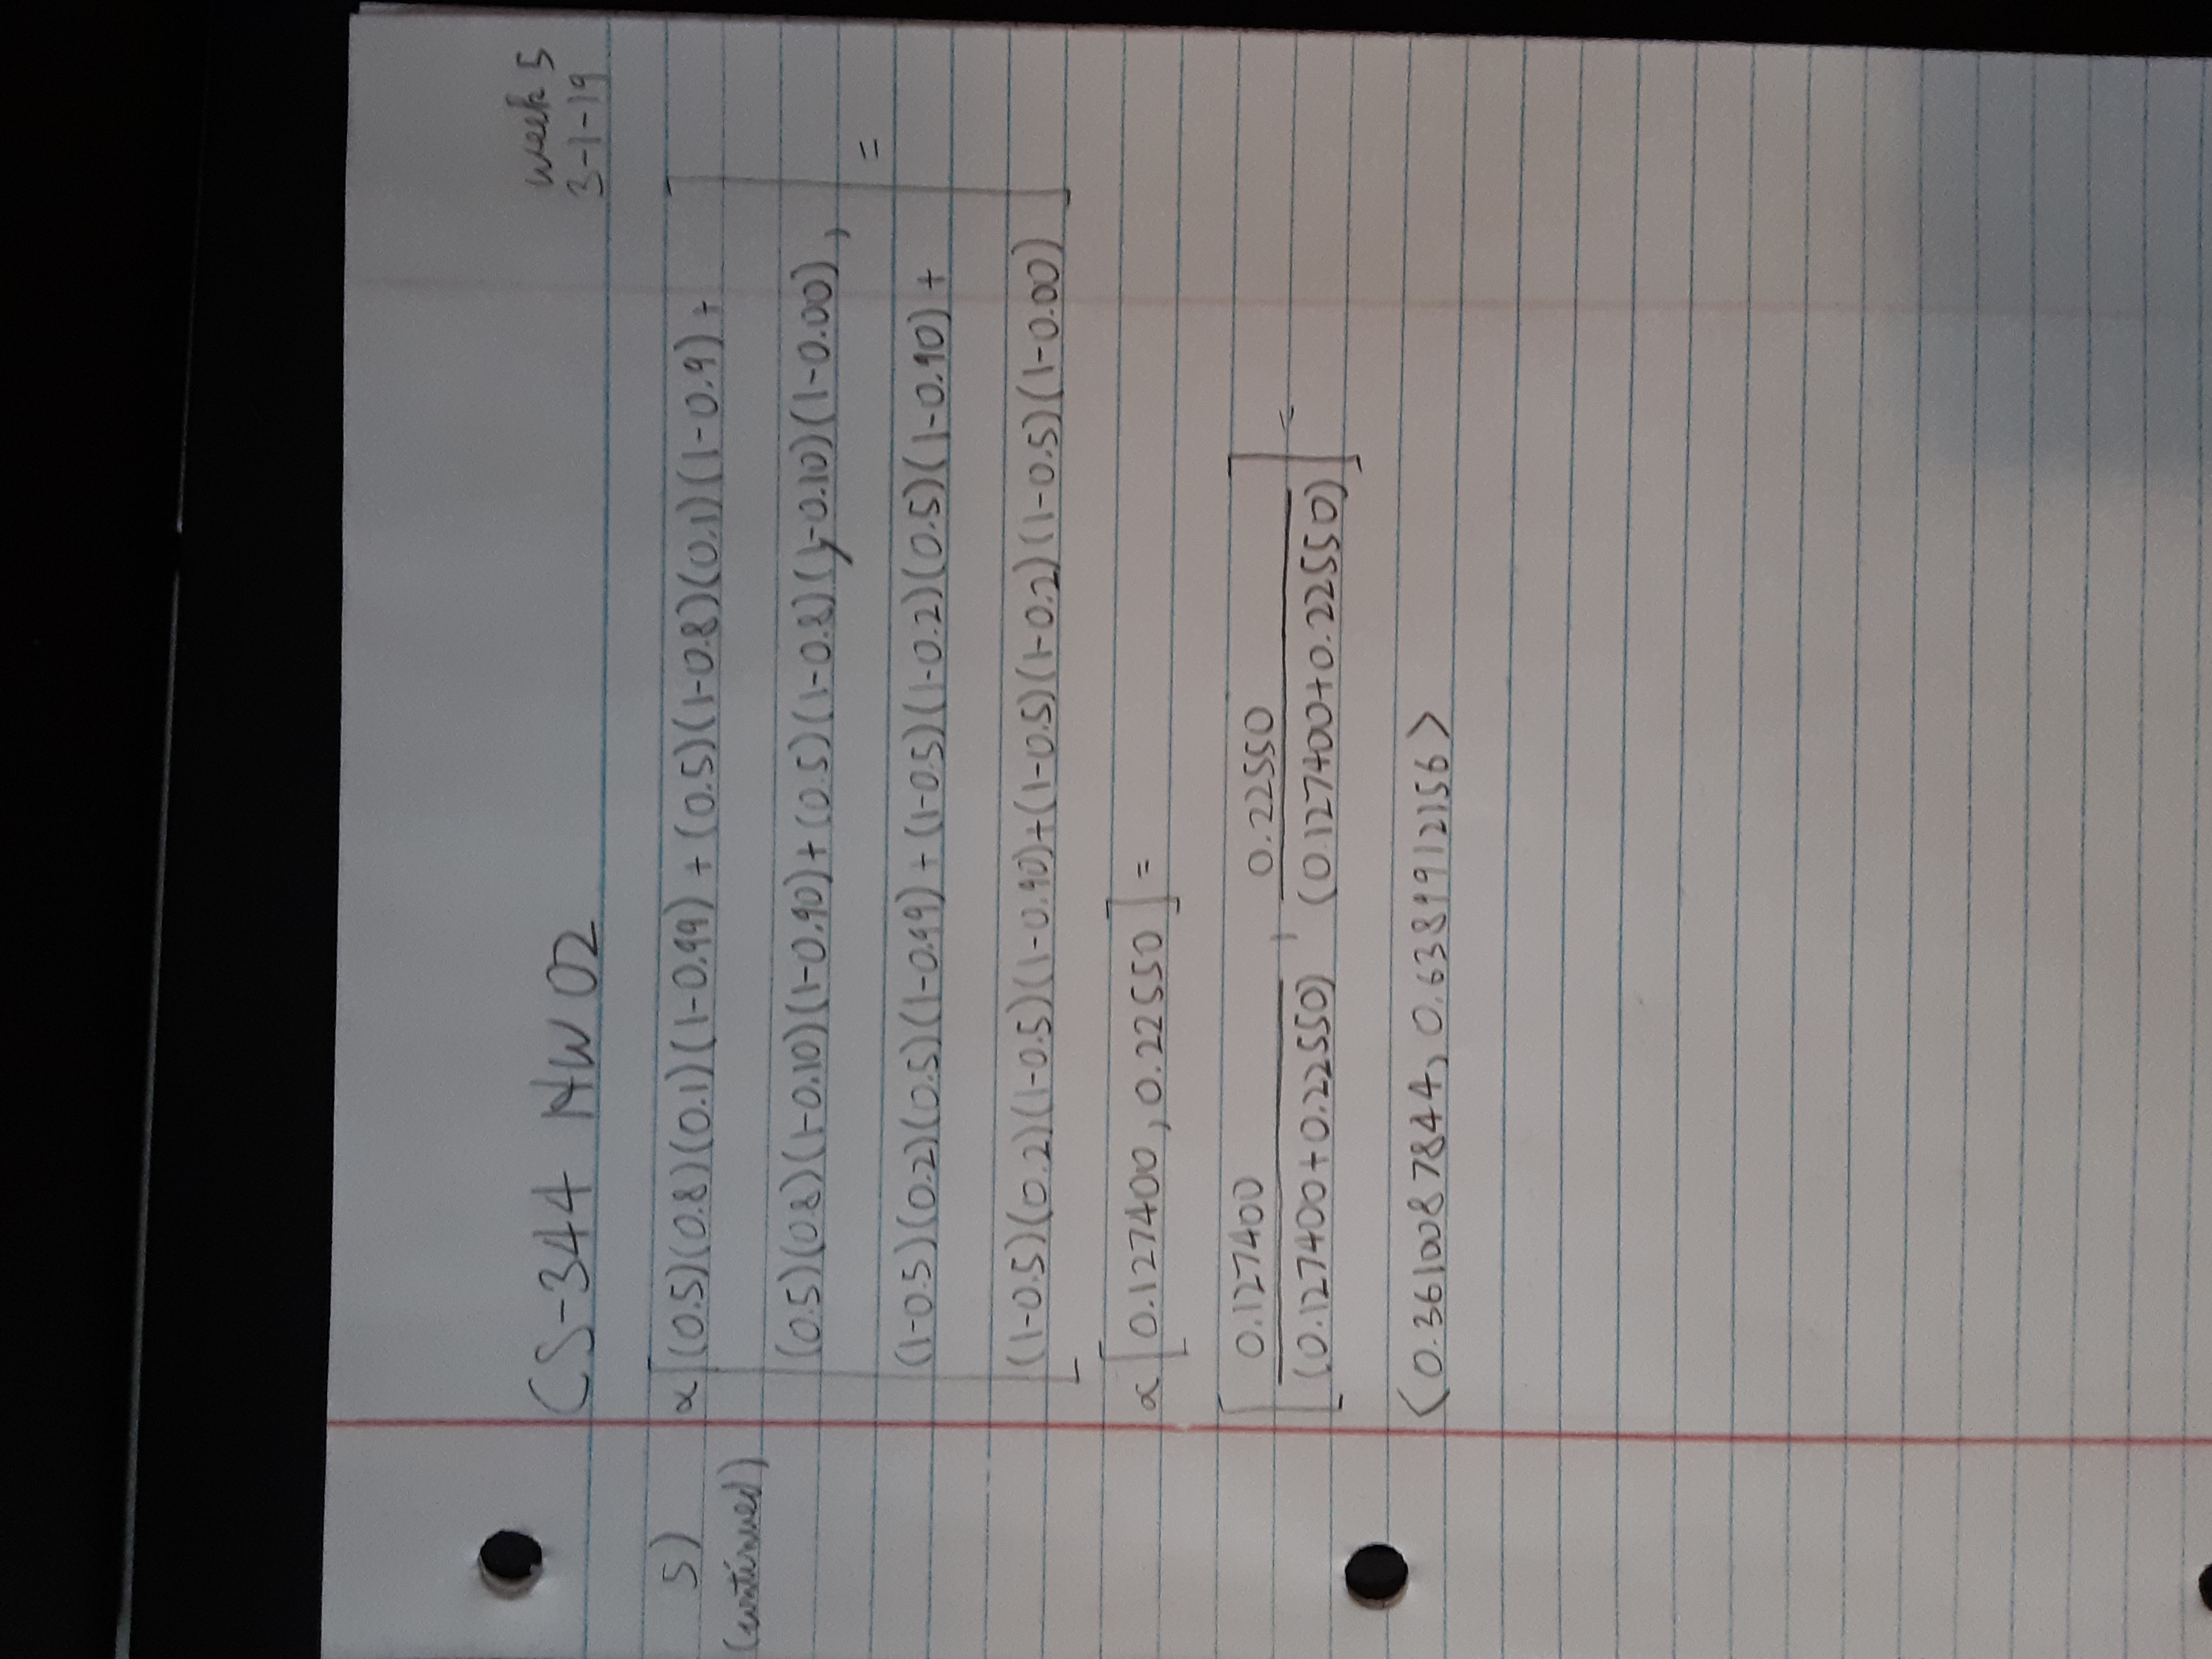 CS-344 HW 02
week 5
3-1-19
5)
(continued)
∝[(0.5)(0.8)(0.1)(1-0.99) + (0.5)(1-0.8)(0.1)(1-0.9) +
(0.5)(0.8)(1-0.10)(1-0.90) + (0.5)(1-0.8)(1-0.10)(1-0.00),
(1-0.5)(0.2)(0.5)(1-0.99) + (1-0.5)(1-0.2)(0.5)(1-0.90) +
(1-0.5)(0.2)(1-0.5)(1-0.90) + (1-0.5)(1-0.2)(1-0.5)(1-0.00)] =
∝[0.127400, 0.22550] =
[0.127400/(0.127400+0.22550), 0.22550/(0.127400+0.22550)] =
<0.3610087844, 0.6389912156>